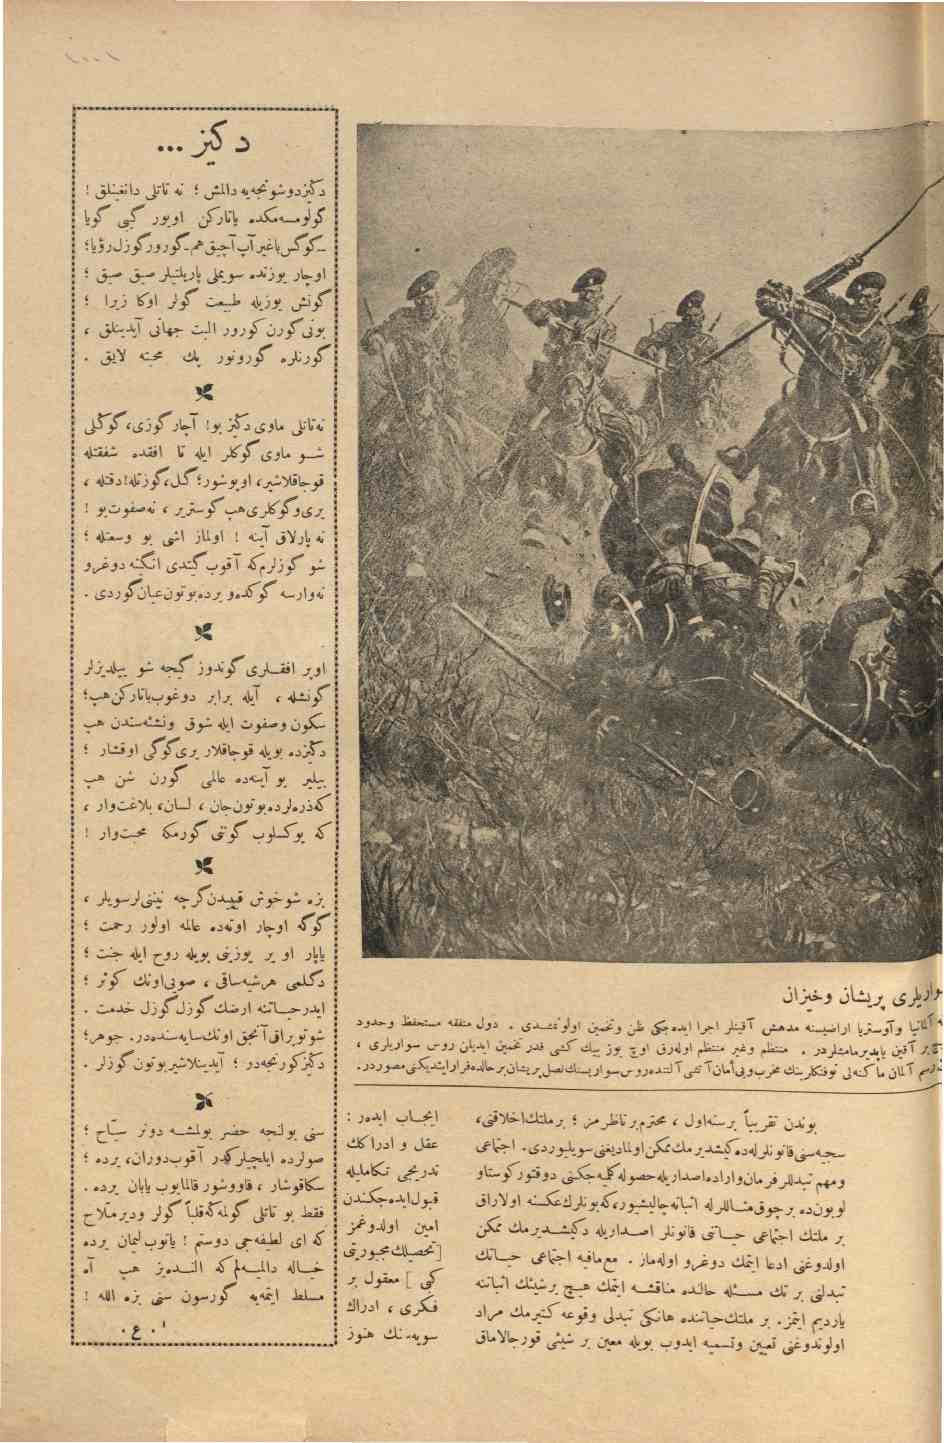 دكيز ...
دكيزدوشونجه‌يه دالمش ؛ نه تاتلی دالغينلق !
گولومسه‌مكده ياتاركن اويور گبی گويا
ـ كوگس باغير آپ آچيق هم ـ گورور گوزل رؤيا؛
اوچار يوزنده سويملی پاريلتيلر صيق صيق ؛
گونش يوزيله طبيعت گولر اوكا زيرا ؛
بونی گورن گورور البت جهانی آيدينلق ،
گورنلره گورونور پك محبته لايق .
نه تاتلی ماوی دكيز بو! آچار گوزی، گوكلی
شو ماوی گوكلر ايله تا افقده شفقتله
قوجاقلاشير، اوپوشور؛ گل، گوزتله! دقتله ،
يری و گوكلری هپ گوستریر ، نه صفوت بو !
نه پارلاق آينه ! اولماز اشی بو وسعتله ؛
شو گوزلرم كه آقوب گيتدی انگينه دوغرو
نه وارسه گوكده و يرده بوتون عيان گوردی .
اوپر افقلری گوندوز گيجه شو ييلديزلر
گونشله ، آيله برابر دوغوب باتاركن هپ؛
سكون وصفوت ايله شوق ونشئه‌سندن هپ
دكيزده بويله قوجاقلار يری گوگی اوقشار ؛
بيلير بو آينه‌ده عالمی گورن شن هپ
كه ذره‌لرده بوتون جان ، لسان، بلاغت وار ،
كه يوكسلوب گونی گورمكه محبت وار !
بزه شو خوش قيپيدن گرچه نينی لر سويلر ،
گوگه اوچار اوته‌ده عالمه اولور رحمت ؛
ياپار او ير يوزينی بويله روح ايله جنت ؛
دگلمی هر شيه ساقی ، صويی اونك كوثر ؛
ايدر حياتنه ارضك گوزل گوزل خدمت .
شو توپراق آنجق اونك سايه‌سنده‌در. جوهر؛
دكيز كورنجه‌در ؛ آيدينلاشير بوتون گوزلر .
سنی بولنجه حضر بولمشه دونر سياح ؛
صولرده ايلچيلر گيدر آقوب دوران، يرده ؛
سكا قوشار ، قاووشور قالمايوب يابان يرده .
فقط بو تاتلی گولمه كه قلباً گولر ويرر ملاح
كه ای لطيفه‌جی دوستم ! ياتوب ليمان يرده
خياله دالميه‌لم كه النده‌يز هپ آه
مسلط ايتمه‌يه گورسون سنی بزه الله !
ا . ع .
واريلری پريشان وخيزان
آلمانيا وآوستريا اراضيسنه مدهش آقينلر اجرا ايده‌جكی ظن وتخمين اولونمشدی . دول متفقه مستحفظ وحدود
بر آقين ياپديرمامشلردر . منتظم وغير منتظم اوله‌رق اوچ يوز بيك كشی قدر تخمين ايديلن روس سواريلری ،
رسم آلمان ماكنه‌لی توفنكلرينك مخرب وبی‌امان آتشی آلتنده روس سواريسنك نصل پريشان بر حالده فرار ايتديكنی مصوردر.
بوندن تقريباً بر سنه اول ، محترم بر ناظرمز ؛ بر ملتك اخلاقنی،
سجيه‌سنی قانونلرله دكيشديرمك ممكن اولماديغنی سويليوردی. اجتماعی
ومهم تبدللر فرمان واراده اصداريله حصوله كليه‌جكنی دوقتور گوستاو
لوبون‌ده بر چوق مثاللرله اثباته چاليشيور، كه بونلرك عكسنه اولاراق
بر ملتك اجتماعی حياتنی قانونلر اصداريله دكيشديرمك ممكن
اولدوغنی ادعا ايتمك دوغرو اوله‌ماز . مع‌مافيه اجتماعی حياتك
تبدلنی بر تك مسئله حالنده مناقشه ايتمك هيچ برشيئك اثباتنه
ياردیم ايتمز. بر ملتك حياتنده هانكی تبدلی وقوعه كتيرمك مراد
اولوندوغنی تعيين وتسميه ايدوب بويله معين بر شيئی قورجالاماق
ايجاب ايده‌ر :
عقل و ادراكك
تدريجی تكامليله
قبول ايده‌جكندن
امين اولدوغمز
[ تحصيلك مجبوريتی
كبی ] معقول بر
فكری ، ادراك
سويه‌سنك هنوز